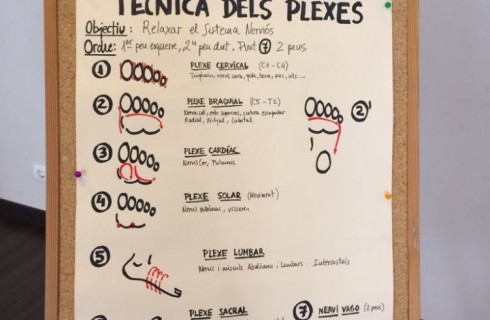 TÈCNICA DELS PLEXES
Objectiu: Relaxar el Sistema Nerviós
Ordre: 1er peu esquerre, 2n peu dret. Punt 7 2 peus
1 PLEXE CERVICAL (C1-C4)
cara, gola, boca, ulls...
2 PLEXE BRAQUIAL (C5-T2) 2'
Nervis coll, extr superiors, cintura escapular
Radial, Mitjà, Cubital
3 PLEXE CARDÍAC
Nervis Cor, Pulmons
4 PLEXE SOLAR (Moviment)
Nervis abdominals, vísceres
5 PLEXE LUMBAR
Nervis i músculs Abdomen i Lumbars Intercostals
PLEXE SACRAL 7 NERVI VAGO (2 peus)